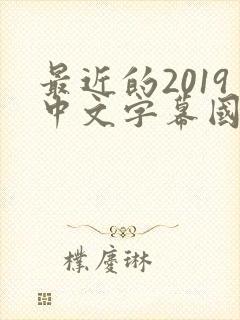 最近的2019
中文字幕國
樸慶琳